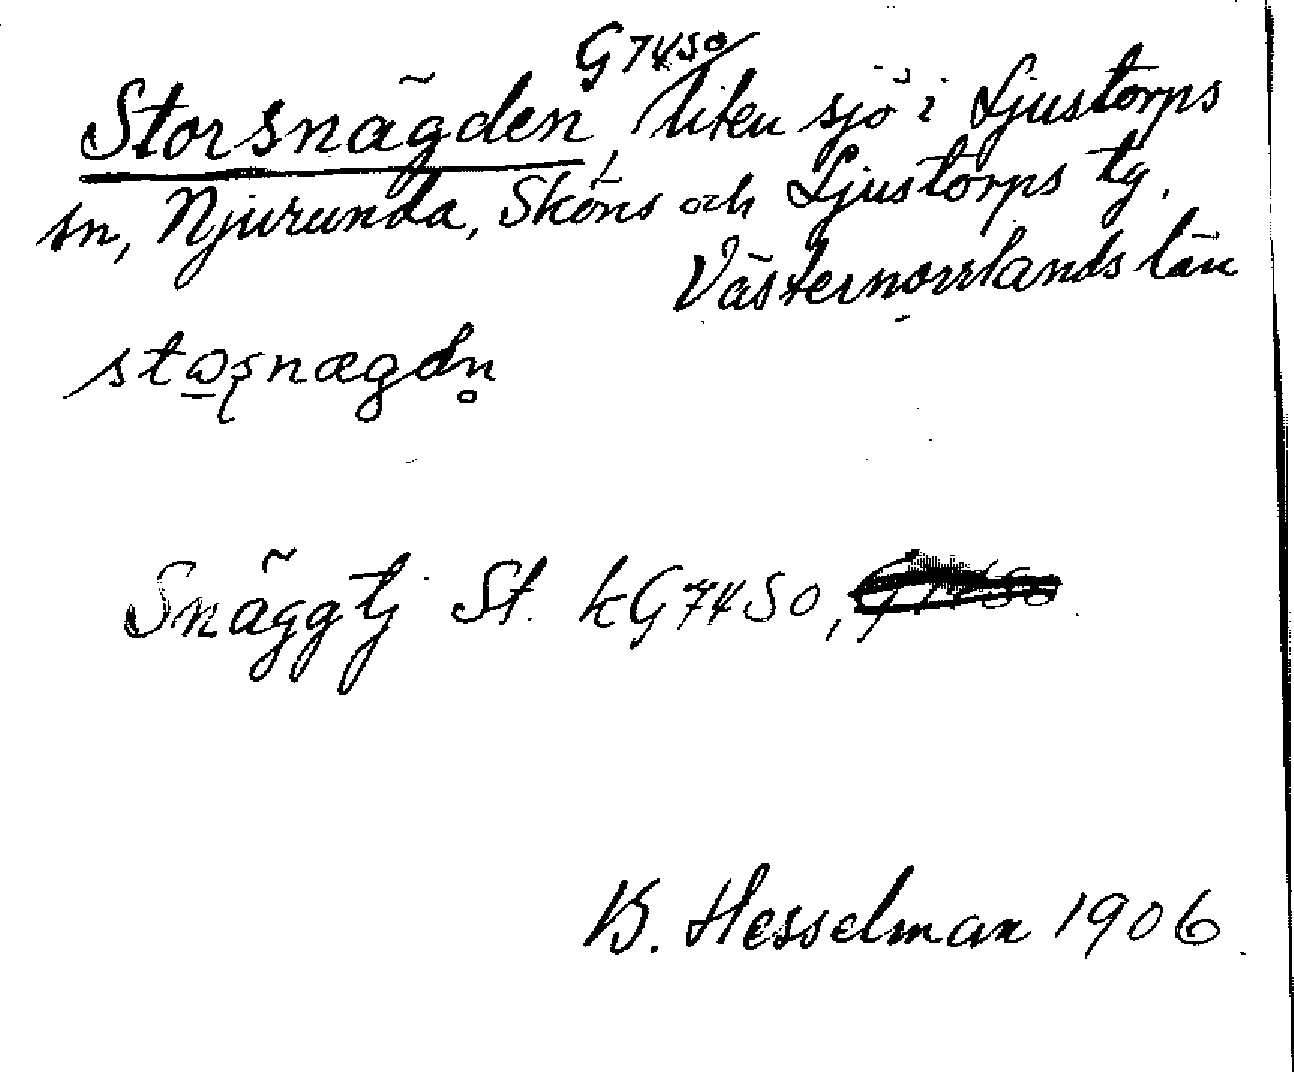 G74SO
Storsnägden, liten sjö i Ljustorps
sn, Njurunda, Sköns och Ljustorps tg.
Västernorrlands län
stɷʂnægdn̥
Snäggtj St. kG74SO,
B. Hesselman 1906.